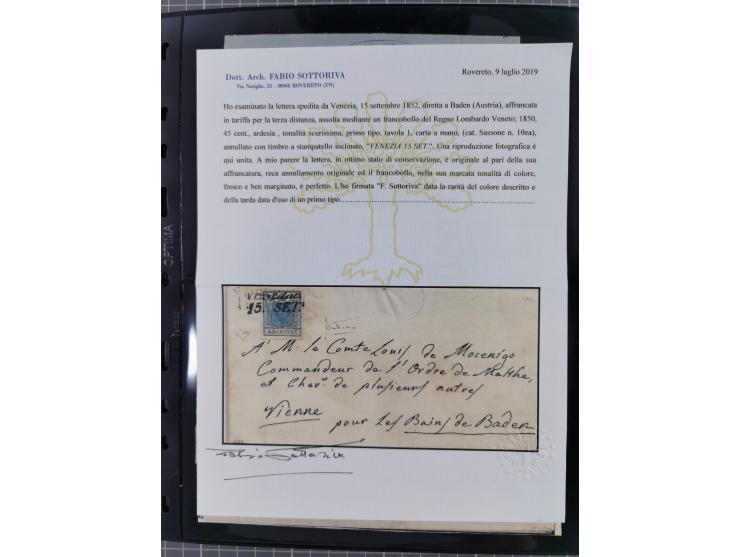 Dott. Arch. FABIO SOTTORIVA
Via Noriglio, 25 - 38068 ROVERETO (TN)
Rovereto, 9 luglio 2019
Ho esaminato la lettera spedita da Venezia, 15 settembre 1852, diretta a Baden (Austria), affrancata
in tariffa per la terza distanza, assolta mediante un francobollo del Regno Lombardo Veneto; 1850,
45 cent., ardesia , tonalità scurissima, primo tipo, tavola 1, carta a mano, (cat. Sassone n. 10ea),
annullato con timbro a stampatello inclinato, "VENEZIA 15 SET.". Una riproduzione fotografica è
qui unita. A mio parere la lettera, in ottimo stato di conservazione, è originale al pari della sua
affrancatura, reca annullamento originale ed il francobollo, nella sua marcata tonalità di colore,
fresco e ben marginato, è perfetto. L'ho firmata "F. Sottoriva" data la rarità del colore descritto e
della tarda data d'uso di un primo tipo.
OPTIMA
VENEZIA
15. SET.
45 CENTES
A' M. le Comte Louis de Mocenigo
Commandeur de l'Ordre de Malthe,
et Chevr. de plusieurs autres
Vienne
pour les Bains de Baden
Fabio Sottoriva